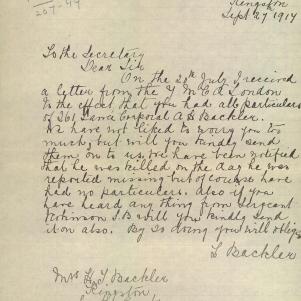 Kingston
Sept 27 1917
To the Secretary
Dear Sir
On the 20th July I received
a letter from the Y M C A London
to the effect that you had all particulars
of 361 Lance Corporal A H Backler.
We have not liked to worry you too
much, but will you kindly send
them on to us. We have been notified
that he was killed on the day he was
reported missing but of course have
had no particulars. Also if you
have heard any thing from Sergeant
Robinson S.B will you kindly send
it on also. By so doing you will oblige
L Backler
Mrs H J Backler
Kingston